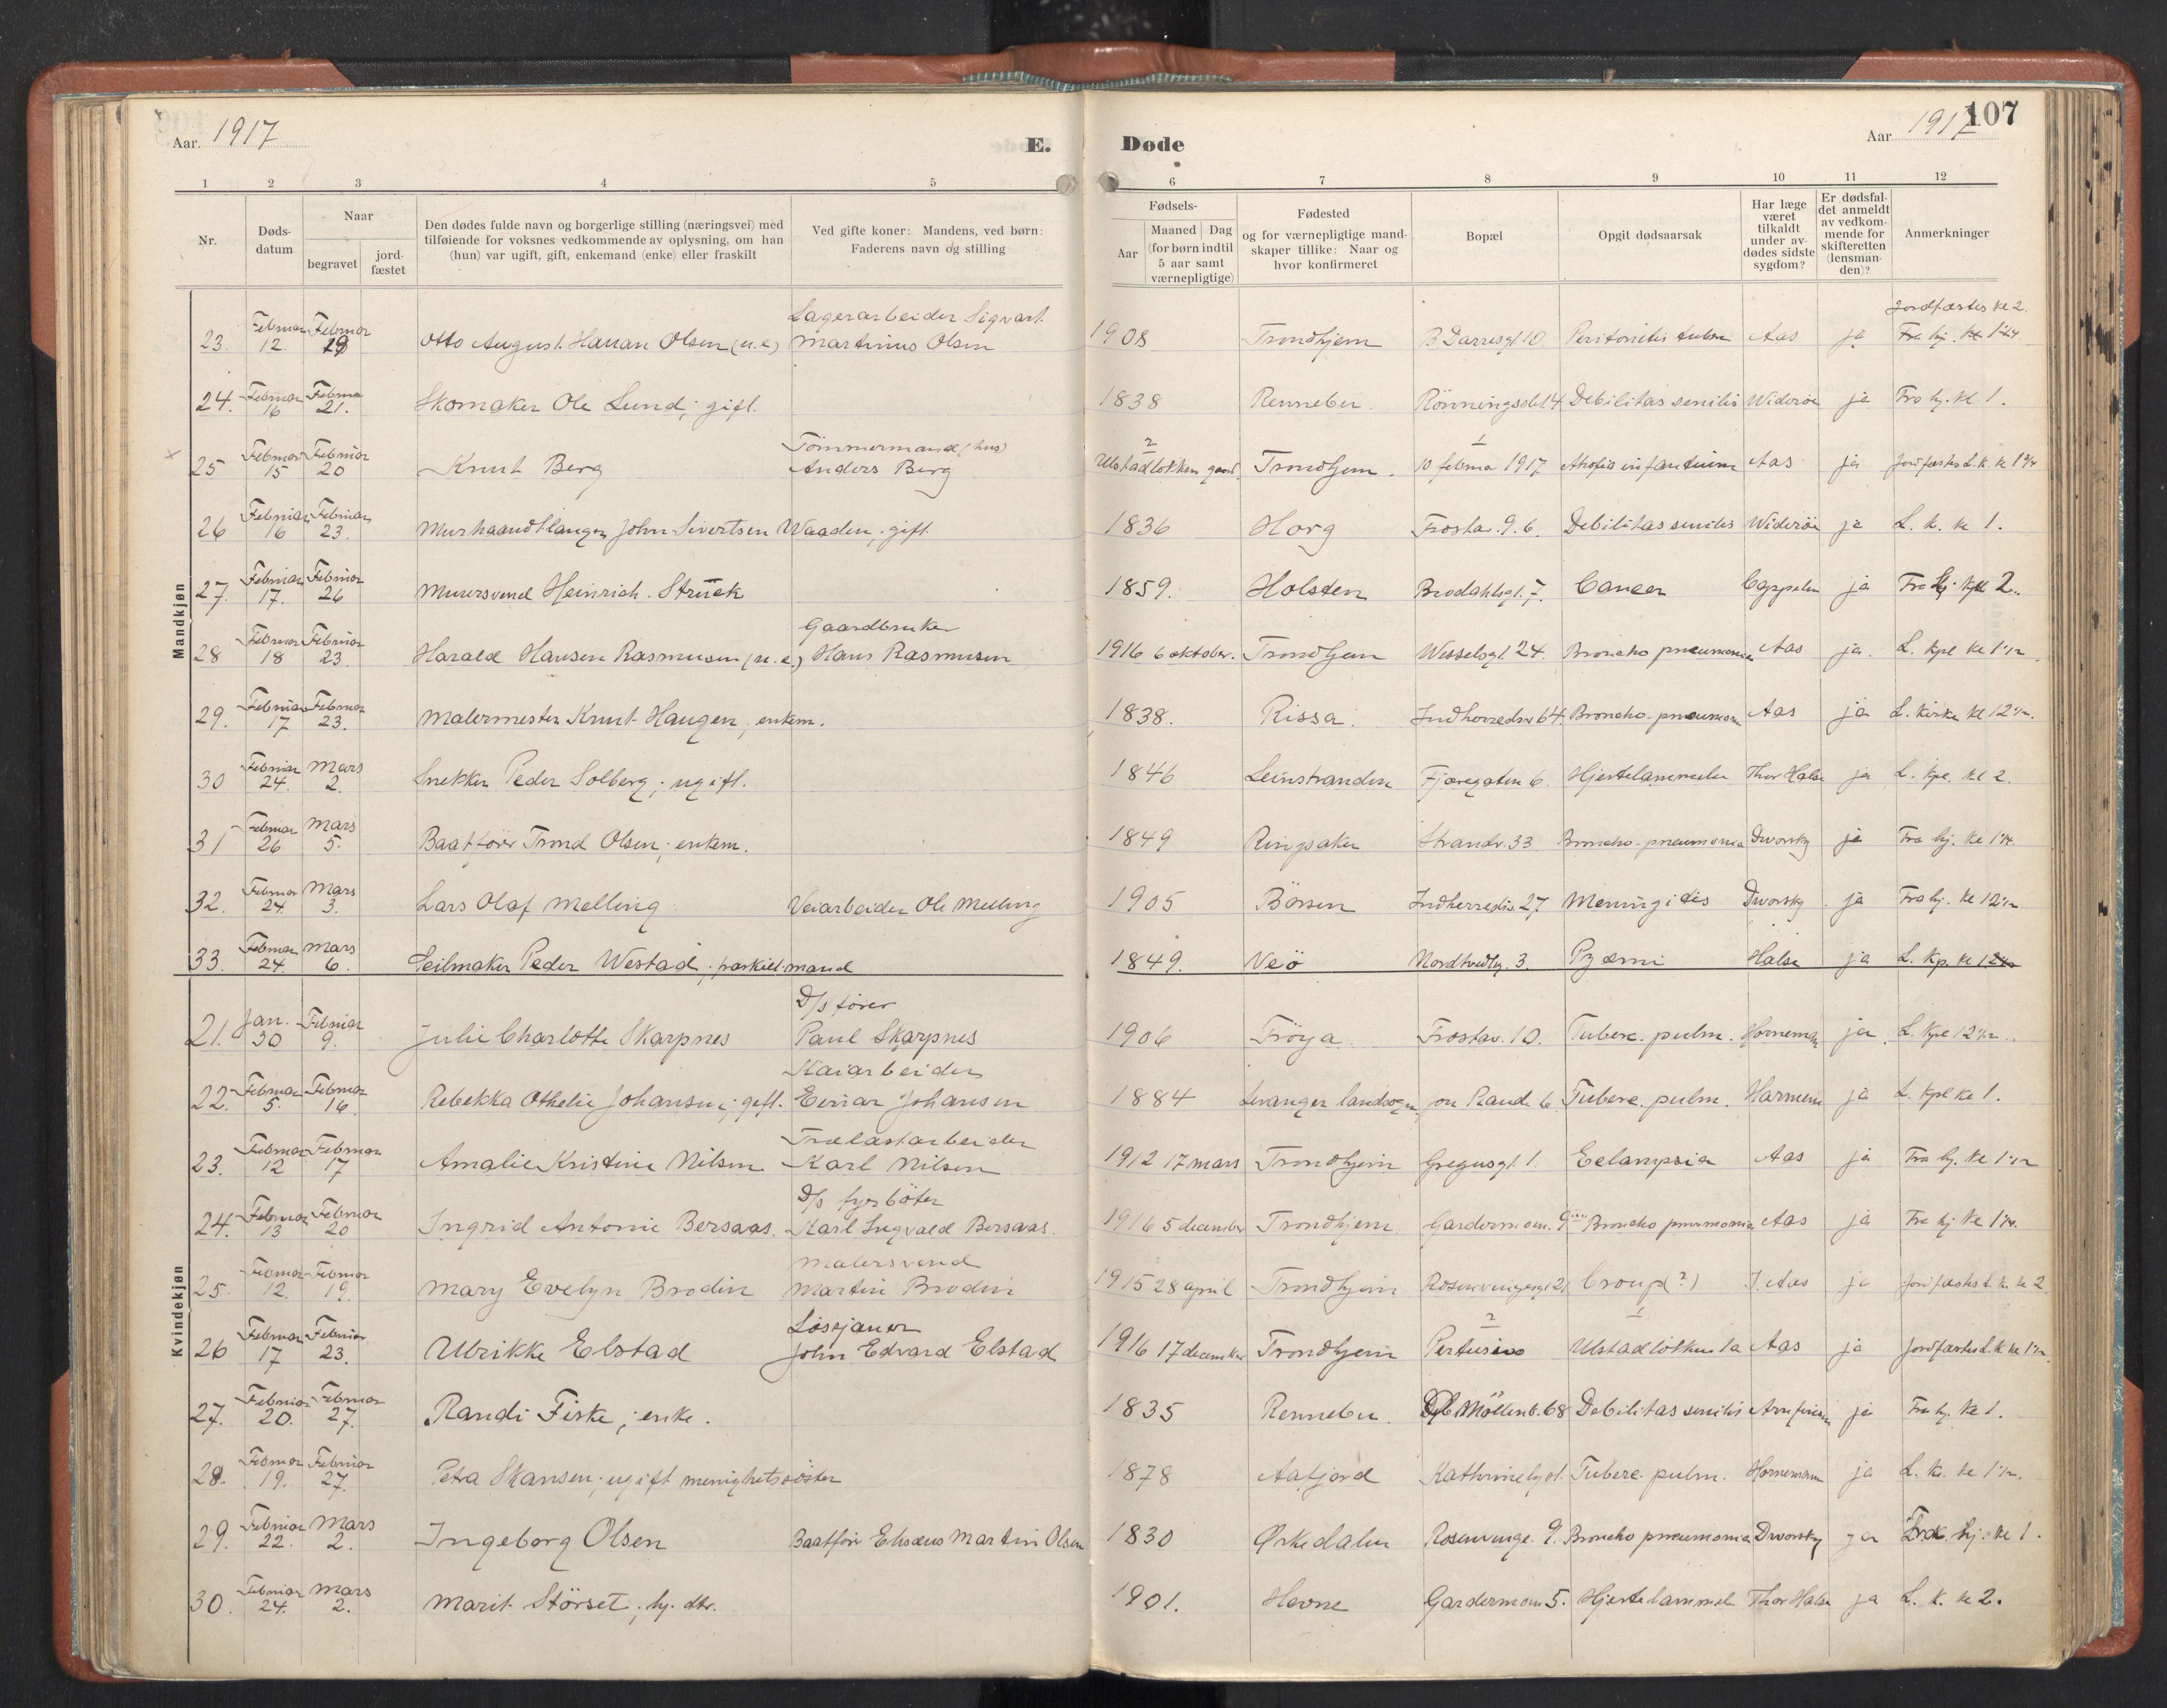 Aar. 1917
E.
Døde
Aar 1917
107
1 2 3 4 5 6 7 8 9 10 11 12
Nr.
Døds-
datum
Naar
begravet
jord-
fæstet
Den dødes fulde navn og borgerlige stilling (næringsvei) med
tilføiende for voksnes vedkommende av oplysning, om han
(hun) var ugift, gift, enkemand (enke) eller fraskilt
Ved gifte koner: Mandens, ved børn:
Faderens navn og stilling
Fødsels-
Aar
Maaned Dag
(for børn indtil
5 aar samt
værnepligtige)
Fødested
og for værnepligtige mand-
skaper tillike: Naar og
hvor konfirmeret
Bopæl
Opgit dødsaarsak
Har læge
været
tilkaldt
under av-
dødes sidste
sygdom?
Er dødsfal-
det anmeldt
av vedkom-
mende for
skifteretten
(lensman-
den)?
Anmerkninger
Mandkjøn
Februar Februar Lagerarbeider Sigvart Jordfæstes kl 2
23. 12. 19 Otto August Hanan Olsen (u.e.) Martinus Olsen 1908 Trondhjem B Darresgt 10 Peritonitis tuberc Aas ja Fra hj.
Februar Februar
24. 16 21. Skomaker Ole Lund; gift. 1838 Rennebu. Rönningsbk. 4 Debilitas senilis Wideröe ja Fra hj. kl 1.
Februar Februar Tömmermand (hus) 2 1
25 15 20 Knut Berg Anders Berg Ulstadløkken Trondhjem. 10 februar 1917 Atrofis infantium Aas ja Jordfæstes L. k. kl 1 3/4
Februar Februar
26 16 23. Murhaandlanger John Sivertsen Waaden; gift. 1836 Horg Frostav. 9. b. Debilitas senilis Wideröe ja L. k. kl 1.
Februar Februar
27. 17. 26 Murersvend Heinrich Strück 1859. Holsten Brodahlsgt. 7. Cancer Cappelen ja Fra hj. kl 2.
Februar Februar Gaardbruker
28 18 23. Harald Hansen Rasmussen (u.e.) Hans Rasmusen 1916 6 oktober. Trondhjem Wesselsgt. 24. Broncho pneumonia Aas ja. L. kpl kl 1 1/2
Februar Februar
29. 17 23. Malermester Knut Haugen; enkem. 1838. Rissa. Indherredsv 64. Broncho-pneumoni Aas ja L. kirke kl 12 1/2.
Februar Mars
30 24. 2. Snekker Peder Solberg; ugift. 1846 Leinstranden Fjæregaten 6. Hjertelammelse Thor Halse ja L. kpl. kl 2.
Februar Mars
31 26 5. Baatförer Trond Olsen; enkem. 1849 Ringsaker Strandv. 33 Broncho-pneumonia Dworsky ja Fra hj. kl 1 1/4.
Februar Mars
32. 24. 3. Lars Olaf Melling Veiarbeider Ole Melling 1905 Börsen Indherredsv. 27 Meningitis Dworsky ja Fra hj. kl 12 1/2
Februar Mars
33. 24. 6. Seilmaker Peder Westad; fraskilt mand 1849. Veö 3. Pyæmi Halse ja L. kp. kl 12 1/2
Kvindekjøn
Jan. Februar D/s fører
21. 30 9. Julie Charlotte Skarpnes Paul Skarpnes 1906 Fröya. Frostav. 10. Tuberc. pulm. Hornemann ja L. kpl 12 1/2.
Februar Februar Kaiarbeider
22. 5. 16. Rebekka Othelie Johansen; gift. Einar Johansen 1884 Levanger landsogn 6. Tuberc. pulm. Harmens ja L. kpl kl 1.
Februar Februar Trælastarbeider
23. 12 17 Amalie Kristine Nilsen Karl Nilsen 1912 17 mars Trondhjem Gregusgt. 1. Eclampsia Aas ja Fra hj. kl 1 1/2
Februar Februar D/s fyrböter
24. 13 20 Ingrid Antonie Bersaas. Karl Ingvald Bersaas. 1916 5 december Trondhjem Gardermoen. 9 Broncho pneumonia Aas ja Fra hj kl 1 1/4.
Februar Februar Malersvend
25. 12. 19. Mary Evelyn Brodin Martin Brodin 1915 28 april Trondhjem Rosenvingesgt 21 Croup (?) J. Aas ja Jordfæstes L. k. kl 2
Februar Februar Losjaner 2 1
26 17 23. Ulrikke Elstad John Edvard Elstad 1916 17 december Trondhjem Pertusiss Ulstadlökken 1a Aas ja Jordfæstes L. k kl 1 1/2.
Februar Februar
27. 20. 27. Randi Fiske; enke. 1835 Rennebu. Möllenb. 68 Debilitas senilis Arnfinsen ja Fra hj. kl 1.
Februar Februar
28. 19. 27. Petra Skansen; ugift menighetssöster 1878 Aafjord Tuberc. pulm. Hornemann ja L. k. kl 1 1/2.
Februar Mars
29. 22. 2. Ingeborg Olsen Baatförer Elisæus Martin Olsen 1830 Ørkedalen Rosenvinge. 9. Broncho pneumonia Dworsky ja Fra hj. kl 1.
Februar Mars
30. 24. 2. Marit Störset; hj. dtr. 1901. Hevne Gardermoen 5. Hjertelammelse Thor Halse ja L. k. kl 2.